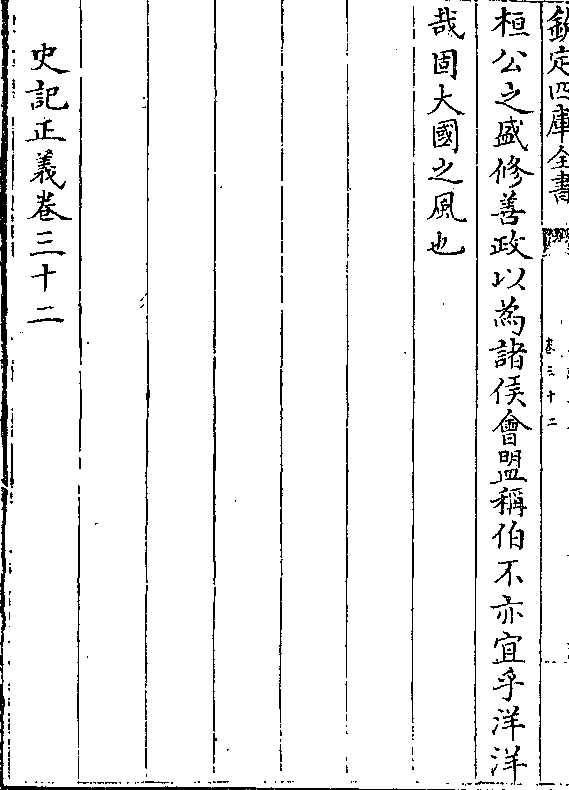 欽定四庫全書
卷三十二
桓公之盛修善政以為諸侯會盟稱伯不亦宜乎洋洋
哉固大國之風也
史記正義卷三十二